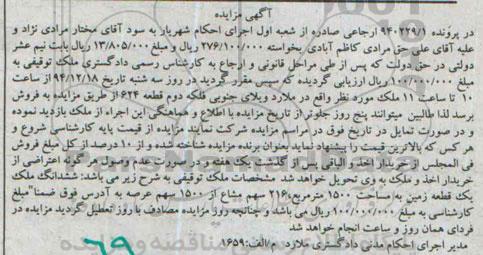 آگهی مزایده
در پرونده ۹۴۰۲۲۹/۱ ارجاعی صادره از شعبه اول اجرای احکام شهریار به سود آقای مختار مرادی نژاد و
علیه آقای علی حق مرادی کاظم آبادی بخواسته ۲۷۶/۱۰۰/۰۰۰ ریال و مبلغ ۱۳/۸۰۵/۰۰۰ ریال بابت نیم عشر
دولتی در حق دولت که پس از طی مراحل قانونی و ارجاع به کارشناس رسمی دادگستری ملک توقیفی به
مبلغ ۱۰۰/۰۰۰/۰۰۰ ریال ارزیابی گردیده که سپس مقرر گردید در روز سه شنبه تاریخ ۹۴/۱۲/۱۸ از ساعت
۱۰ تا ساعت ۱۱ ملک مورد نظر واقع در ملارد ویلای جنوبی فلکه دوم قطعه ۶۲۴ از طریق مزایده به فروش
برسد لذا طالبین میتوانند پنج روز جلوتر از تاریخ مزایده با اطلاع و هماهنگی این اجراء از ملک بازدید نموده
و در صورت تمایل در تاریخ فوق در مراسم مزایده شرکت نمایند مزایده از قیمت پایه کارشناسی شروع و
هر کس که بالاترین قیمت را پیشنهاد نماید بعنوان برنده مزایده شناخته شده و از ۱۰ درصد از کل مبلغ فروش
فی المجلس از خریدار اخذ و الباقی پس از گذشت یک هفته و در صورت عدم وصول هر گونه اعتراضی از
خریدار اخذ و ملک به وی تحویل خواهد شد مشخصات ملک توقیفی به شرح زیر می باشد: ششدانگ ملک
یک قطعه زمین به مساحت ۱۵۰۰ مترمربع ۲۱۶ سهم مشاع از ۱۵۰۰ سهم عرصه به آدرس فوق ضمنا" مبلغ
کارشناسی به مبلغ ۱۰۰/۰۰۰/۰۰۰ ریال می باشد و چنانچه روز مزایده مصادف با روز تعطیل گردید مزایده در
فردای همان روز و ساعت انجام خواهد شد
مدیر اجرای احکام مدنی دادگستری ملارد م/الف: ۱۶۵۹
۶۹